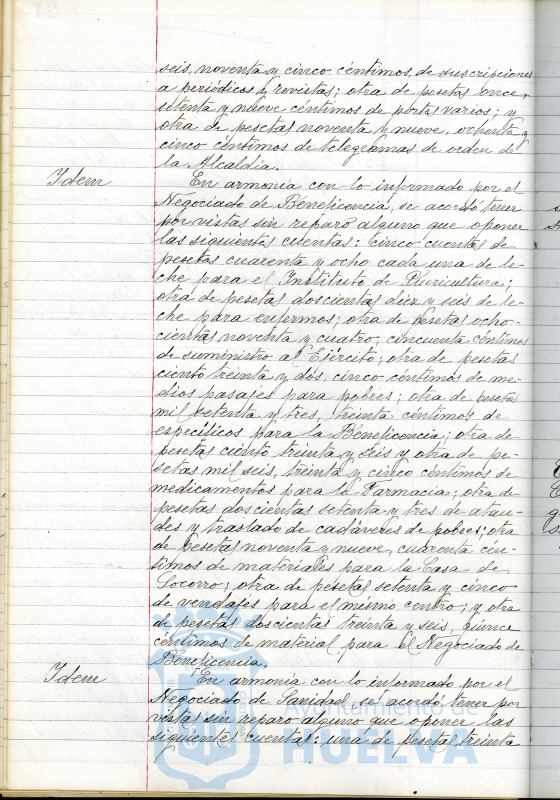 seis, noventa y cinco céntimos, de suscripciones
a periódicos y revistas; otra de pesetas once,
setenta y nueve céntimos de portes varios; y
otra de pesetas noventa y nueve, ochenta y
cinco céntimos de telegramas de orden de
la Alcaldía.
Idem
En armonia con lo informado por el
Negociado de Beneficencia, se acordó tener
por vistas sin reparo alguno que oponer
las siguientes cuentas: cinco cuentas de
pesetas cuarenta y ocho cada una de le-
che para el Instituto de Puericultura;
otra de pesetas doscientas diez y seis de le-
che para enfermos; otra de pesetas ocho-
cientas noventa y cuatro, cincuenta céntimos
de suministro al Ejército; otra de pesetas
ciento treinta y dós, cinco céntimos de me-
dios pasajes para pobres; otra de pesetas
mil setenta y tres, treinta céntimos de
específicos para la Beneficencia; otra de
pesetas ciento treinta y seis y otra de pe-
setas mil seis, treinta y cinco céntimos de
medicamentos para la Farmacia; otra de
pesetas doscientas setenta y tres de ataú-
des y traslado de cadáveres de pobres; otra
de pesetas noventa y nueve, cuarenta cén-
timos de materiales para la Casa de
Socorro; otra de pesetas setenta y cinco
de vendajes para el mismo centro; y otra
de pesetas doscientas treinta y seis, quince
céntimos de material para el Negociado de
Beneficencia.
Idem
En armonia con lo informado por el
Negociado de Sanidad, se acordó tener por
vistas sin reparo alguno que oponer las
siguientes cuentas: una de pesetas treinta
Ayuntamiento de
HUELVA